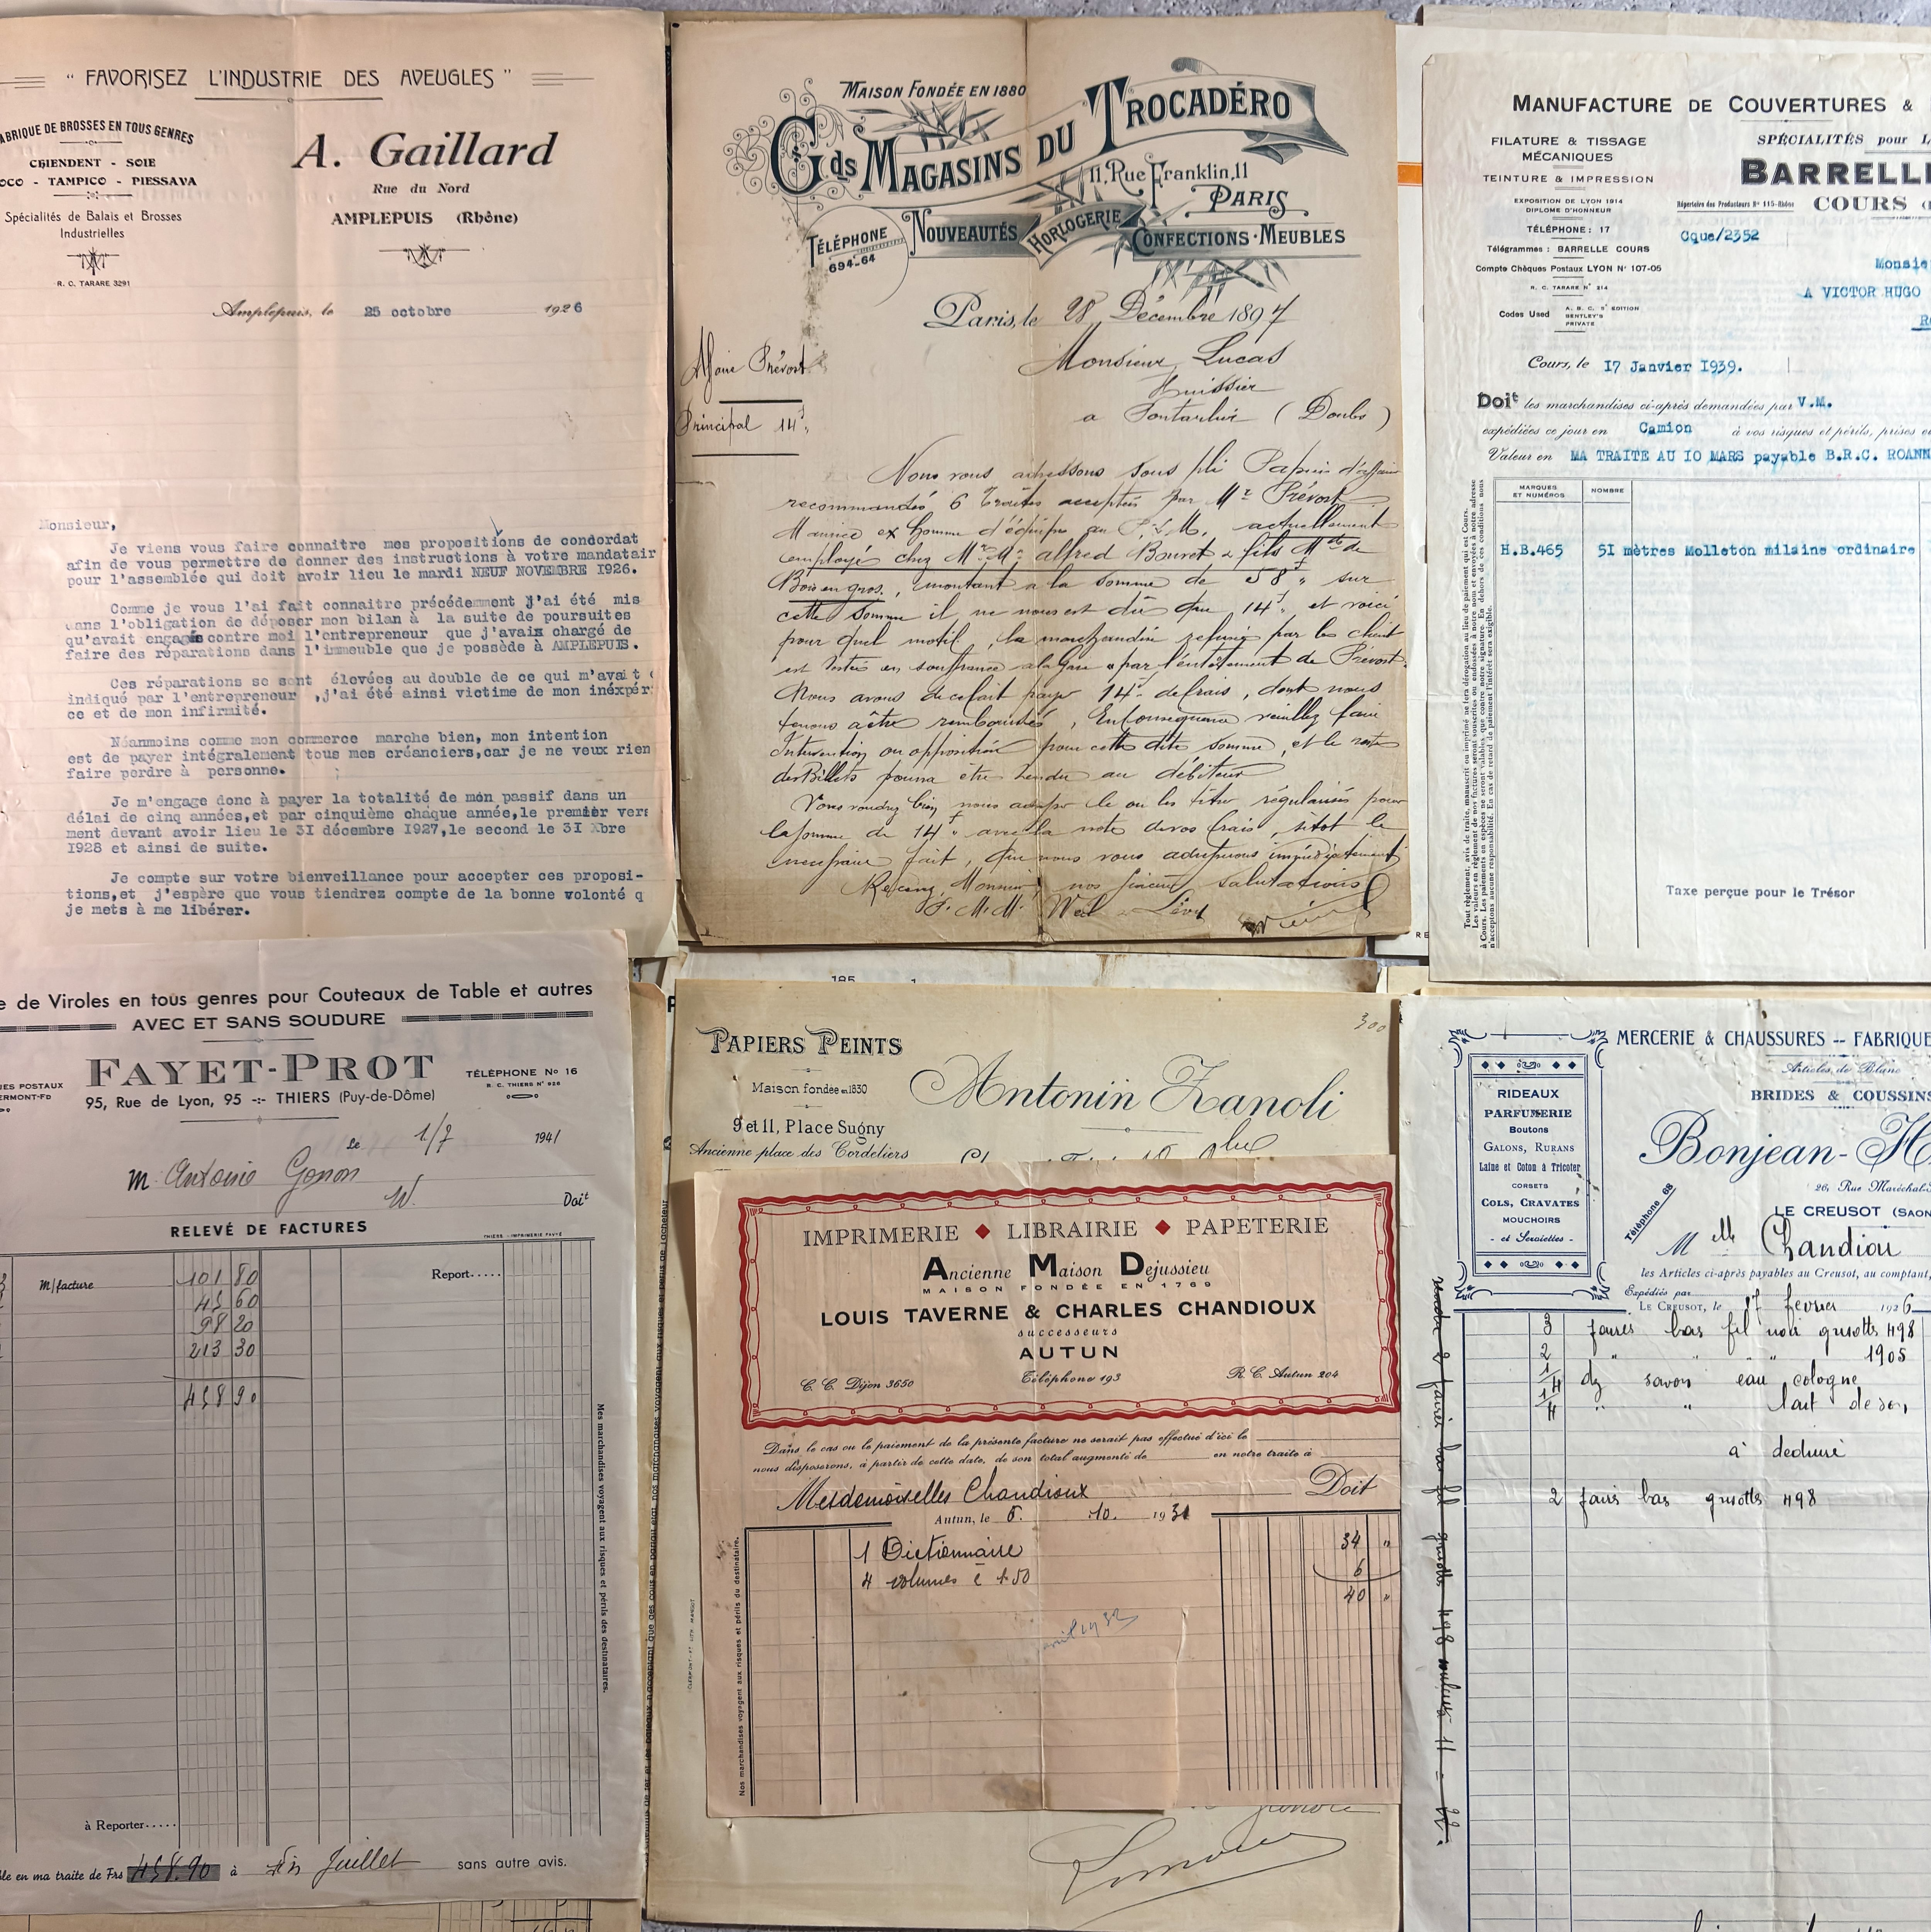 " FAVORISEZ L'INDUSTRIE DES AVEUGLES "
ABRIQUE DE BROSSES EN TOUS GENRES
CHIENDENT - SOIE
OCO - TAMPICO - PIESSAVA
Spécialités de Balais et Brosses
Industrielles
R. C. TARARE 3291
A. Gaillard
Rue du Nord
AMPLEPUIS (Rhône)
Amplepuis, le 25 octobre 1926
Monsieur,
Je viens vous faire connaitre mes propositions de concordat
afin de vous permettre de donner des instructions à votre mandatair
pour l'assemblée qui doit avoir lieu le mardi NEUF NOVEMBRE I926.
Comme je vous l'ai fait connaitre précédemment j'ai été mis
dans l'obligation de déposer mon bilan à la suite de poursuites
qu'avait engagés contre moi l'entrepreneur que j'avais chargé de
faire des réparations dans l'immeuble que je possède à AMPLEPUIS.
Ces réparations se sont élevées au double de ce qui m'avait
indiqué par l'entrepreneur ,j'ai été ainsi victime de mon inéxpér
ce et de mon infirmité.
Néanmoins comme mon commerce marche bien, mon intention
est de payer intégralement tous mes créanciers,car je ne veux rien
faire perdre à personne.
Je m'engage donc à payer la totalité de mon passif dans un
délai de cinq années,et par cinquième chaque année,le premier vers
ment devant avoir lieu le 3I décembre I927,le second le 3I Xbre
I928 et ainsi de suite.
Je compte sur votre bienveillance pour accepter ces proposi-
tions,et j'espère que vous tiendrez compte de la bonne volonté q
je mets à me libérer.
MAISON FONDÉE EN 1880
Gds MAGASINS DU TROCADÉRO
11, Rue Franklin, 11
PARIS
TÉLÉPHONE
694-64
NOUVEAUTÉS HORLOGERIE CONFECTIONS · MEUBLES
Paris, le 28 Décembre 1897
Affaire Prévost
Principal 14f
Monsieur Lucas
Huissier
a Pontarlier (Doubs)
Nous vous adressons sous pli Papiers d'affaire
recommandés 6 Traites acceptées par Mr Prévost
Maurice ex homme d'équipe au P.L.M. actuellement
employé chez Mr Alfred Bourot & fils Mds de
Bois en gros, montant a la somme de 58f sur
cette somme il ne nous est dû que 14f et voici
pour quel motif, la marchandise refusée par le client
est restée en souffrance a la Gare par l'entêtement de Prévost.
Nous avons de ce fait payé 14f de frais, dont nous
tenons a être remboursés, En conséquence veuillez faire
Intervention ou opposition pour cette dite somme, et le reste
des Billets pourra être rendu au débiteur
Vous voudrez bien nous adresser le ou les titres régularisés pour
la somme de 14f avec la note de vos frais, sitot le
necessaire fait, que nous vous adresserons immédiatement
Recevez, Monsieur nos sincères salutations
MANUFACTURE DE COUVERTURES &
FILATURE & TISSAGE
MÉCANIQUES
TEINTURE & IMPRESSION
EXPOSITION DE LYON 1914
DIPLOME D'HONNEUR
TÉLÉPHONE : 17
Télégrammes : BARRELLE COURS
Compte Chèques Postaux LYON N° 107-05
R. C. TARARE N° 214
Codes Used A. B. C. 5° EDITION
BENTLEY'S
PRIVATE
SPÉCIALITÉS pour L
BARRELL
Répertoire des Producteurs N° 115-Rhône COURS
Cque/2352
Monsie
A VICTOR HUGO
Cours, le I7 Janvier I939.
Doit les marchandises ci-après demandées par V.M.
expédiées ce jour en Camion à vos risques et périls, prises e
Valeur en MA TRAITE AU IO MARS payable B.R.C. ROANN
MARQUES
ET NUMÉROS
NOMBRE
H.B.465 5I mètres Molleton milaine ordinaire
Taxe perçue pour le Trésor
Tout règlement, avis de traite, manuscrit ou imprimé ne fera dérogation au lieu de paiement qui est Cours.
Les valeurs en règlement de nos factures seront souscrites ou endossées à notre nom et envoyées à notre adresse
à Cours. Les paiements en espèces ne seront valables que contre notre signature. En dehors de ces conditions nous
n'acceptons aucune responsabilité. En cas de retard de paiement l'intérêt sera exigible.
e de Viroles en tous genres pour Couteaux de Table et autres
AVEC ET SANS SOUDURE
FAYET-PROT
UES POSTAUX
ERMONT-FD
TÉLÉPHONE No 16
R. C. THIERS N° 926
95, Rue de Lyon, 95 -:- THIERS (Puy-de-Dôme)
le 1/7 1941
M. Antoine Gonon
Doit
RELEVÉ DE FACTURES
THIERS. - IMPRIMERIE FAVYÉ
m/facture 101 80
45 60
98 20
213 30
458 90
Report.....
Mes marchandises voyagent aux risques et périls des destinataires.
à Reporter.....
ble en ma traite de Frs 458.90 à fin Juillet sans autre avis.
PAPIERS PEINTS
Maison fondée en 1830
9 et 11, Place Sugny
Ancienne place des Cordeliers
Antonin Zanoli
300
IMPRIMERIE ♦ LIBRAIRIE ♦ PAPETERIE
Ancienne Maison Dejussieu
MAISON FONDÉE EN 1769
LOUIS TAVERNE & CHARLES CHANDIOUX
successeurs
AUTUN
C. C. Dijon 3650 Téléphone 193 R. C. Autun 204
Dans le cas ou le paiement de la présente facture ne serait pas effectué d'ici le
nous disposerons, à partir de cette date, de son total augmenté de en notre traite à
Mesdemoiselles Chandioux Doit
Autun, le 6. 10. 1931
1 Dictionnaire 34 "
4 volumes à 1.50 6
40 "
Nos marchandises voyagent aux risques et périls du destinataire.
MERCERIE & CHAUSSURES -- FABRIQUE
Articles de Blanc
BRIDES & COUSSINS
RIDEAUX
PARFUMERIE
Boutons
GALONS, RUBANS
Laine et Coton à Tricoter
CORSETS
COLS, CRAVATES
MOUCHOIRS
- et Serviettes -
Bonjean-H
Téléphone 68
26, Rue Maréchal-
LE CREUSOT (SAON
Melle Chandiou
les Articles ci-après payables au Creusot, au comptant,
Expédiés par
LE CREUSOT, le 17 fevrier 1926
3 paires bas fil noir grisotte 498
2 " " " 1905
1/4 dz savon eau cologne
1/4 " " lait de son
à deduire
2 paires bas grisotte 498